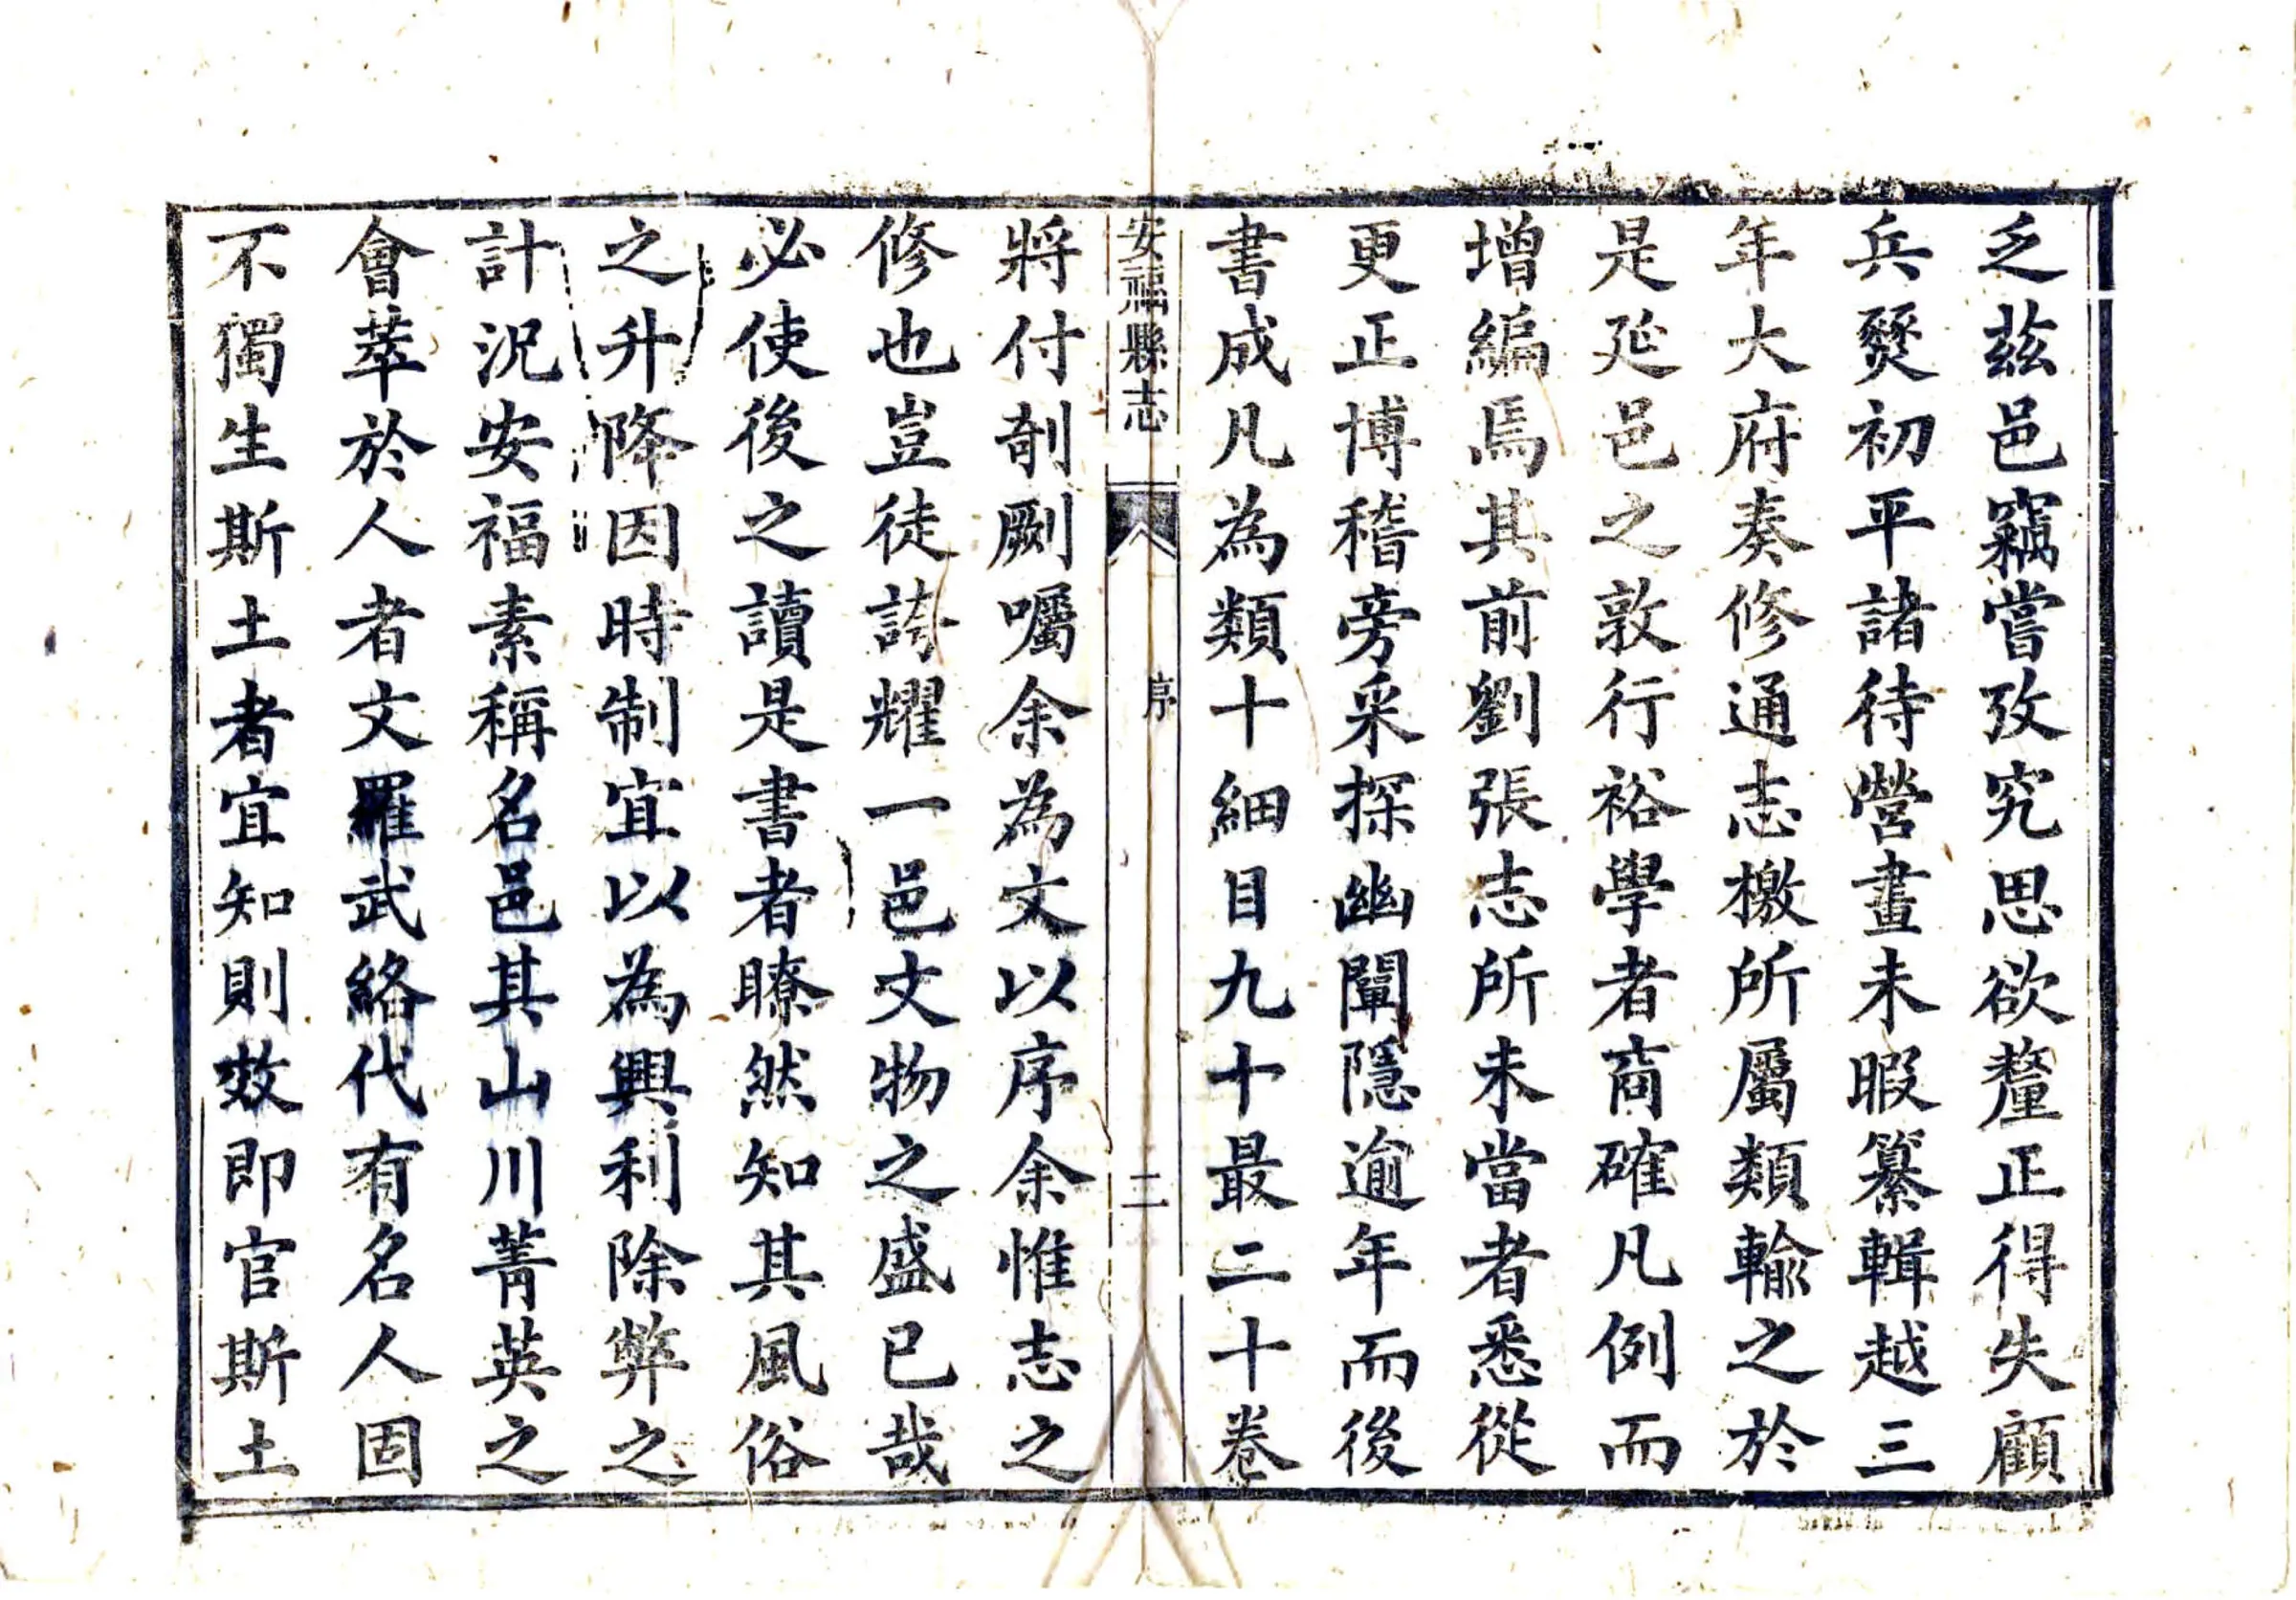 乏茲邑竊嘗攷究思欲釐正得失顧
兵燹初平諸待營畫未暇纂輯越三
年大府奏修通志檄所屬類輸之於
是延邑之敦行裕學者商確凡例而
增編焉其前劉張志所未當者悉從
更正博稽旁采探幽闡隱逾年而後
書成凡為類十細目九十最二十卷
安福縣志
序
二
將付剞劂囑余為文以序余惟志之
修也豈徒誇耀一邑文物之盛已哉
必使後之讀是書者瞭然知其風俗
之升降因時制宜以為興利除弊之
計況安福素稱名邑其山川菁英之
會萃於人者文羅武絡代有名人固
不獨生斯土者宜知則效即官斯土